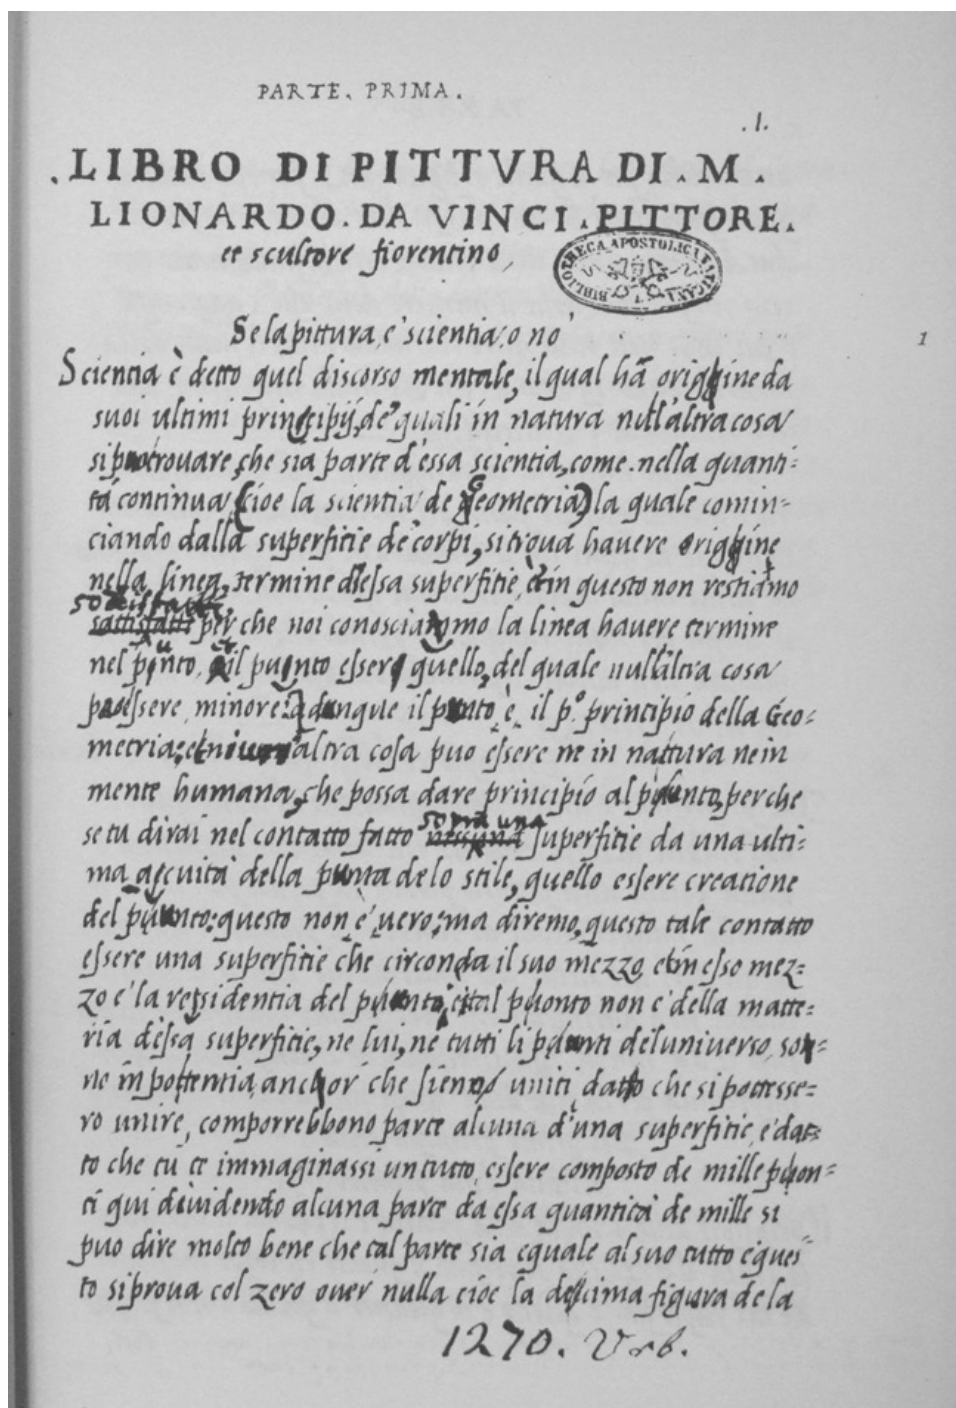 PARTE. PRIMA.
.1.
.LIBRO DI PITTVRA DI. M.
LIONARDO. DA VINCI. PITTORE.
et scultore fiorentino,
BIBLIOTHECA APOSTOLICA VATICANA
Se la pittura, e' scientia, o no'
1
Scientia è detto quel discorso mentale, il qual hà origgine da
suoi ultimi principij, de' quali in natura null'altra cosa
si puo trouare, che sia parte d'essa scientia, come. nella quanti=
tá continua, (cioe la scientia de Geometria) la quale comin=
ciando dalla superfitie de corpi, si troua hauere origgine
nella linea, termine d'essa superfitie, et in questo non restiamo
sodisfatti
sattisfatti per che noi conosciammo la linea hauere termine
nel punto, et il punto essere quello, del quale null'altra cosa
puo essere minore: adunque il punto, è, il p.º principio della Geo=
metria; et niuna altra cosa puo essere ne in nattura ne in
mente humana, che possa dare principio al punto, perche
sopra una
se tu dirai nel contatto fatto nessuna superfitie da una ulti=
ma accuità della punta de lo stile, quello essere creatione
del punto: questo non é uero; ma diremo, questo tale contatto
essere una superfitie che circonda il suo mezzo, et in esso mez=
zo e' la residentia del punto, et tal puonto non e' della matte=
ria d'essa superfitie, ne lui, ne tutti li punti del uniuerso, son=
ne in pottentia, anchor' che sieno uniti, datto che si pottesse=
ro unire, comporrebbono parte alcuna d'una superfitie, e' dat=
to che tú te immaginassi un tutto, essere composto de mille puon=
ti qui diuidendo alcuna parte da essa quantità de mille si
puo dire molto bene che tal parte sia equale al suo tutto e' ques=
to si proua col zero ouer' nulla cioe la decima figura de la
1270. Urb.